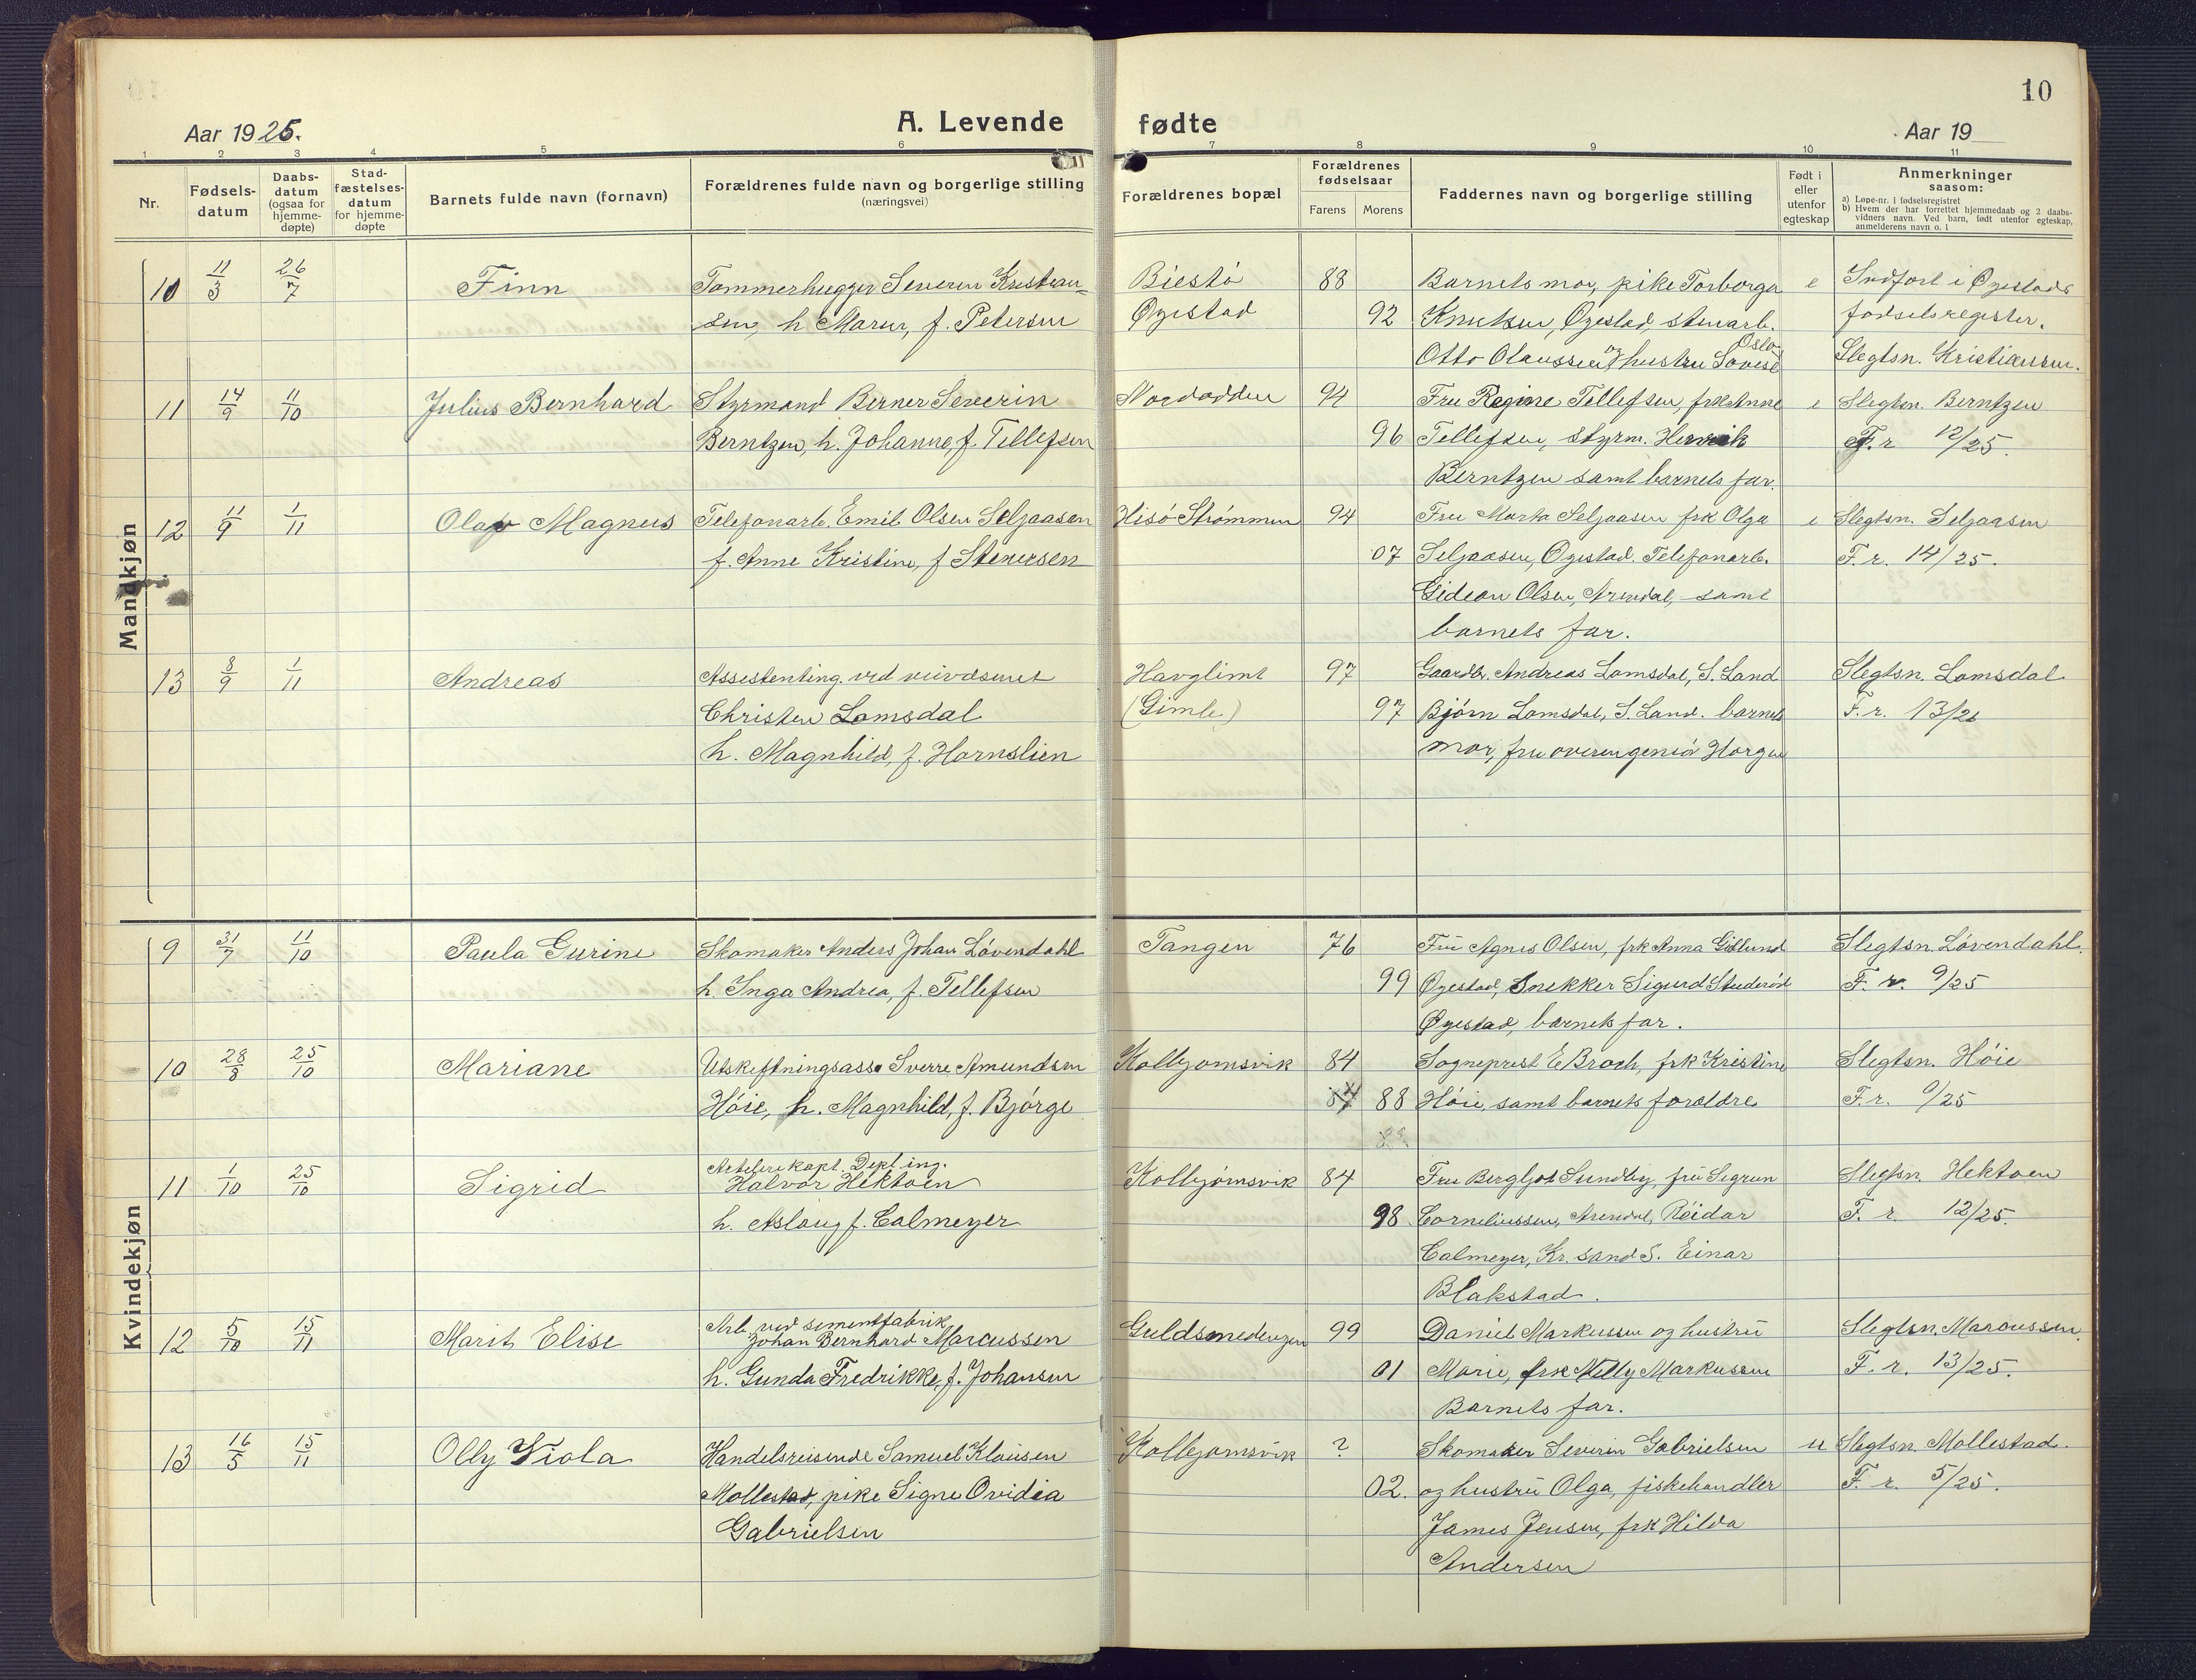 10
Aar 1925.
A. Levende
fødte
Aar 19
1 2 3 4 5 6 7 8 9 10 11
Nr.
Fødsels-
datum
Daabs-
datum
(ogsaa for
hjemme-
døpte)
Stad-
fæstelses-
datum
for hjemme-
døpte
Barnets fulde navn (fornavn)
Forældrenes fulde navn og borgerlige stilling
(næringsvei)
Forældrenes bopæl
Forældrenes
fødselsaar
Farens Morens
Faddernes navn og borgerlige stilling
Født i
eller
utenfor
egteskap
Anmerkninger
saasom:
a) Løpe-nr. i fødselsregistret
b) Hvem der har forrettet hjemmedaab og 2 daabs-
vidners navn. Ved barn, født utenfor egteskap,
anmelderens navn o. l
Mandkjøn
10 11/3 26/7 Finn Tømmerhugger Severin Kristian= Biestø 88 Barnets mor, pike Torborga e Indført i Øyestads
sen, h Maren, f. Petersen Øyestad 92 Knutsen, Øyestad, stenarb. fødselsregister.
Otto Olaussen og hustru Lovise Oslo Slegtsn. Kristianssen.
11 14/9 11/10 Julius Bernhard Styrmand Berner Severin Nordodden 94 Fru Regine Tellefsen, frk Anne e Slegtsn. Berntzen
Berntzen, h. Johanne, f. Tellefsen 96 Tellefsen, styrm. Henrik F. r 12/25.
Berntzen samt barnets far.
12 11/9 1/11 Olav Magnus Telefonarb. Emil Olsen Seljaasen Hisø Strømmen 94 Fru Marta Seljaasen frk Olga e Slegtsn. Seljaasen
f. Anne Kristine, f Stenersen 07 Seljaasen, Øyestad. Telefonarb. F. r. 14/25.
Gideon Olsen, Arendal, samt
barnets far.
13 8/9 1/11 Andreas Assestenting. ved veivæsenet Havglimt 97 Gaardbr. Andreas Lomsdal, S. Land Slegtsn. Lomsdal
Christen Lomsdal (Gimle) 97 Bjørn Lomsdal, S. Land. barnets F. r. 13/25
h. Magnhild, f. Hornslien mor, fru overingeniør Horgen
Kvindekjøn
9 31/7 11/10 Paula Gurine Skomaker Anders Johan Løvendahl Tangen 76 Fru Agnes Olsen, frk Anna Slegtsn. Løvendahl.
h. Inga Andrea, f. Tellefsen 99 Øyestad, Snekker Sigurd F. r. 9/25
Øyestad, barnets far.
10 28/8 25/10 Mariane Utskiftningsass. Sverre Amundsen Kolbjørnsvik 84 Sogneprest E Broch, frk Kristine Slegtsn. Høie
Høie, h. Magnhild, f. Bjørge 88 Høie, samt barnets forældre F. r. 9/25
11 1/10 25/10 Sigrid Artelerikapt. Dept. ing. Kolbjørnsvik 84 Fru Bergljot Sundby, fru Sigrun Slegtsn. Hektoen
Halvor Hektoen
h. Aslaug f. Calmeyer 98 Corneliussen, Arendal, Reidar F. r. 12/25.
Calmeyer, Kr. sand S. Einar
Blakstad.
12 5/10 15/11 Marit Elise Arb. ved sementfabrik Guldsmedengen 99 Daniel Markussen og hustru Slegtsn. Marcussen.
Johan Bernhard Marcussen
h. Gunda Fredrikke, f. Johansen 01 Marie, frk Nelly Markussen F. r. 13/25.
Barnets far.
13 16/5 15/11 Olly Viola Handelsreisende Samuel Klausen Kolbjørnsvik ? Skomaker Severin Gabrielsen u Slegtsn. Mollestad.
Mollestad, pike Signe Ovidia 02. og hustru Olga, fiskehandler F. r. 5/25.
Gabrielsen James Jensen, frk Hilda
Andersen